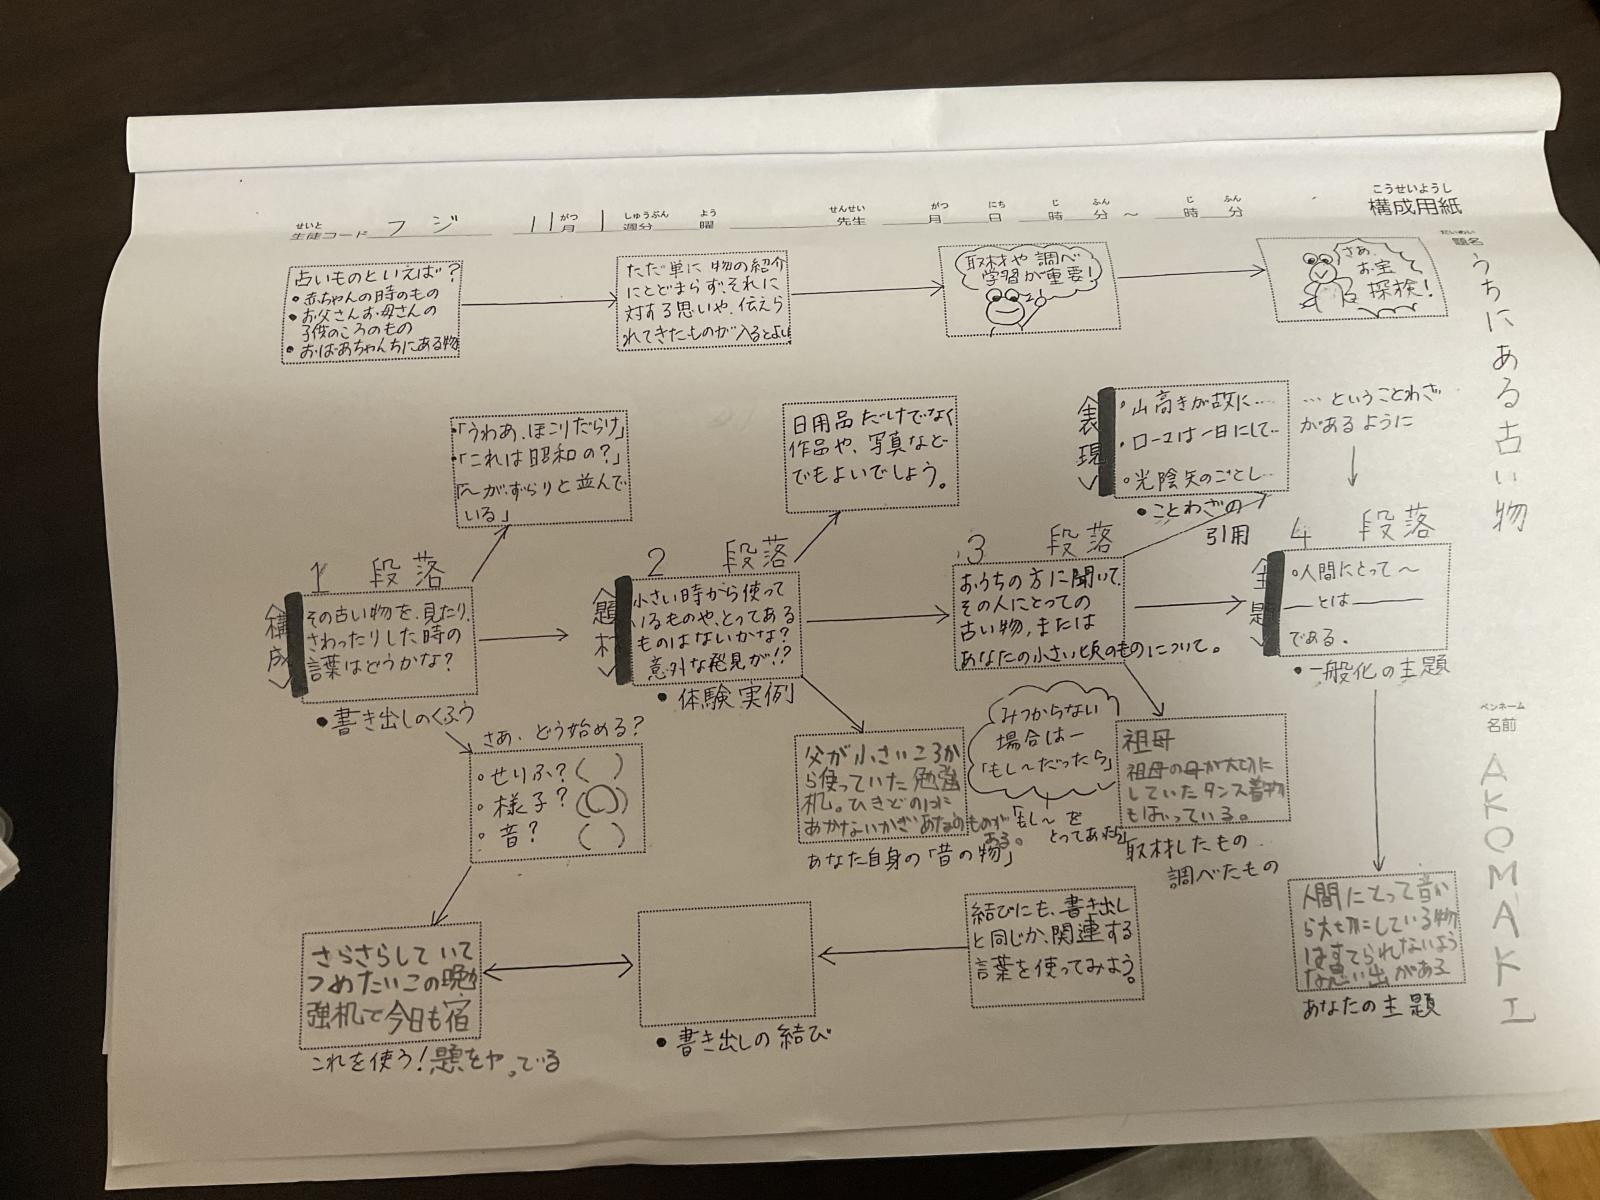 こうせいようし
構成用紙
せいと
生徒コード フジ 11 がつ 月 1 しゅうぶん 週分 よう 曜 せんせい 先生 がつ 月 にち 日 じ 時 ふん 分 〜 じ 時 ふん 分
だいめい
題名
うちにある古い物
ペンネーム
名前
AKOMAKI
古いものといえば?
•赤ちゃんの時のもの
•お父さんお母さんの
子供のころのもの
•おばあちゃんちにある物
ただ単に物の紹介
にとどまらず、それに
対する思いや、伝えら
れてきたものが入るとよい
取材や調べ
学習が重要!
さあ、
お宝
探検!
•「うわあ、ほこりだらけ」
•「これは昭和の?」
「〜がずらりと並んで
いる」
日用品だけでなく
作品や、写真など
でもよいでしょう。
表現
•山高きが故に……
•ローマは一日にして…
•光陰矢のごとし…
•ことわざの
引用
…ということわざ
があるように
1 段落
構成
その古い物を、見たり、
さわったりした時の
言葉はどうかな?
•書き出しのくふう
2 段落
題材
小さい時から使って
いるものや、とってある
ものはないかな?
意外な発見が!?
•体験実例
3 段落
おうちの方に聞いて、
その人にとっての
古い物、または
あなたの小さい頃のものについて。
4 段落
主題
•人間にとって〜
――とは――――
である。
•一般化の主題
さあ、どう始める?
•せりふ?( )
•様子?(○)
•音? ( )
父が小さいころか
ら使っていた勉強
机。ひきどの中に
あかないかぎあなのものが
ある。
あなた自身の「昔の物」
みつからない
場合は―
「もし〜だったら」
「もし〜を
とってあれたら」
祖母
祖母の母が大切に
していたタンス着物
もはいっている。
取材したもの
調べたもの
人間にとって昔か
ら大切にしている物
はすてられないよう
な思い出がある
あなたの主題
さらさらしていて
つめたいこの勉
強机で今日も宿
題をやっている
これを使う!
•書き出しの結び
結びにも、書き出し
と同じか、関連する
言葉を使ってみよう。